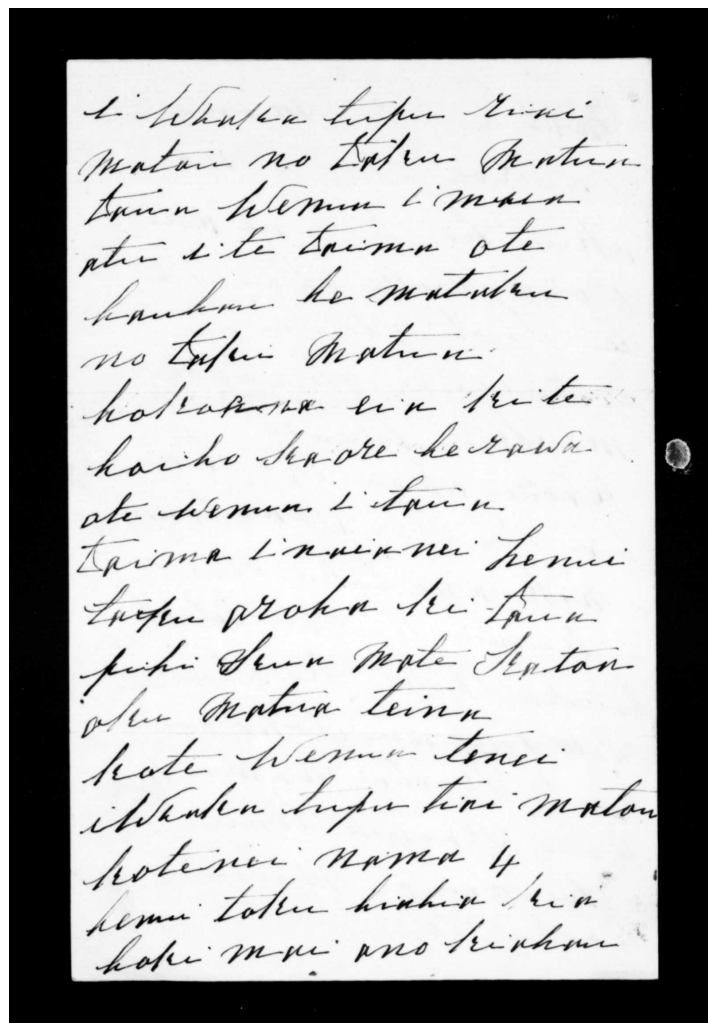 i Whaka tupu riai
matou no taku Matua
taua Wenua i mua
atu i te taima ote
hauhau he mataku
no taku Matua
hokoana eia kite
hoiho kaore he rawa
ote wenua i taua
taima inaianei henui
taku aroha ki taua
puhi kua mate katoa
oku Matua teina
kote Wenua tenei
iWaka tupu tiai matou
kotenei nama 4
henui toku hiahia kia
hoki mai ano kiahau